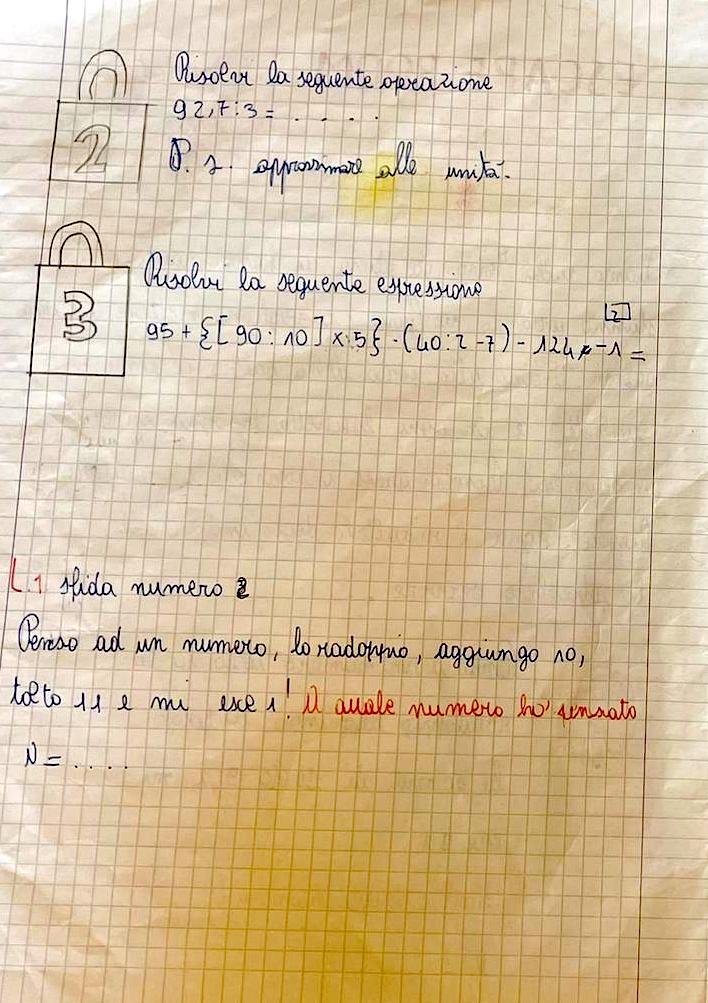 Risolvi la seguente operazione
92,7:3 = . . . .
2
P. s. approssimare alle unità.
Risolvi la seguente espressione
3
[2]
95 + {[90:10] x 5} - (40:2-7) - 124 -1 =
L.1 sfida numero 2
Penso ad un numero, lo radoppio, aggiungo 10,
tolto 11 e mi esce 1! A quale numero ho' pensato
N = . . . .